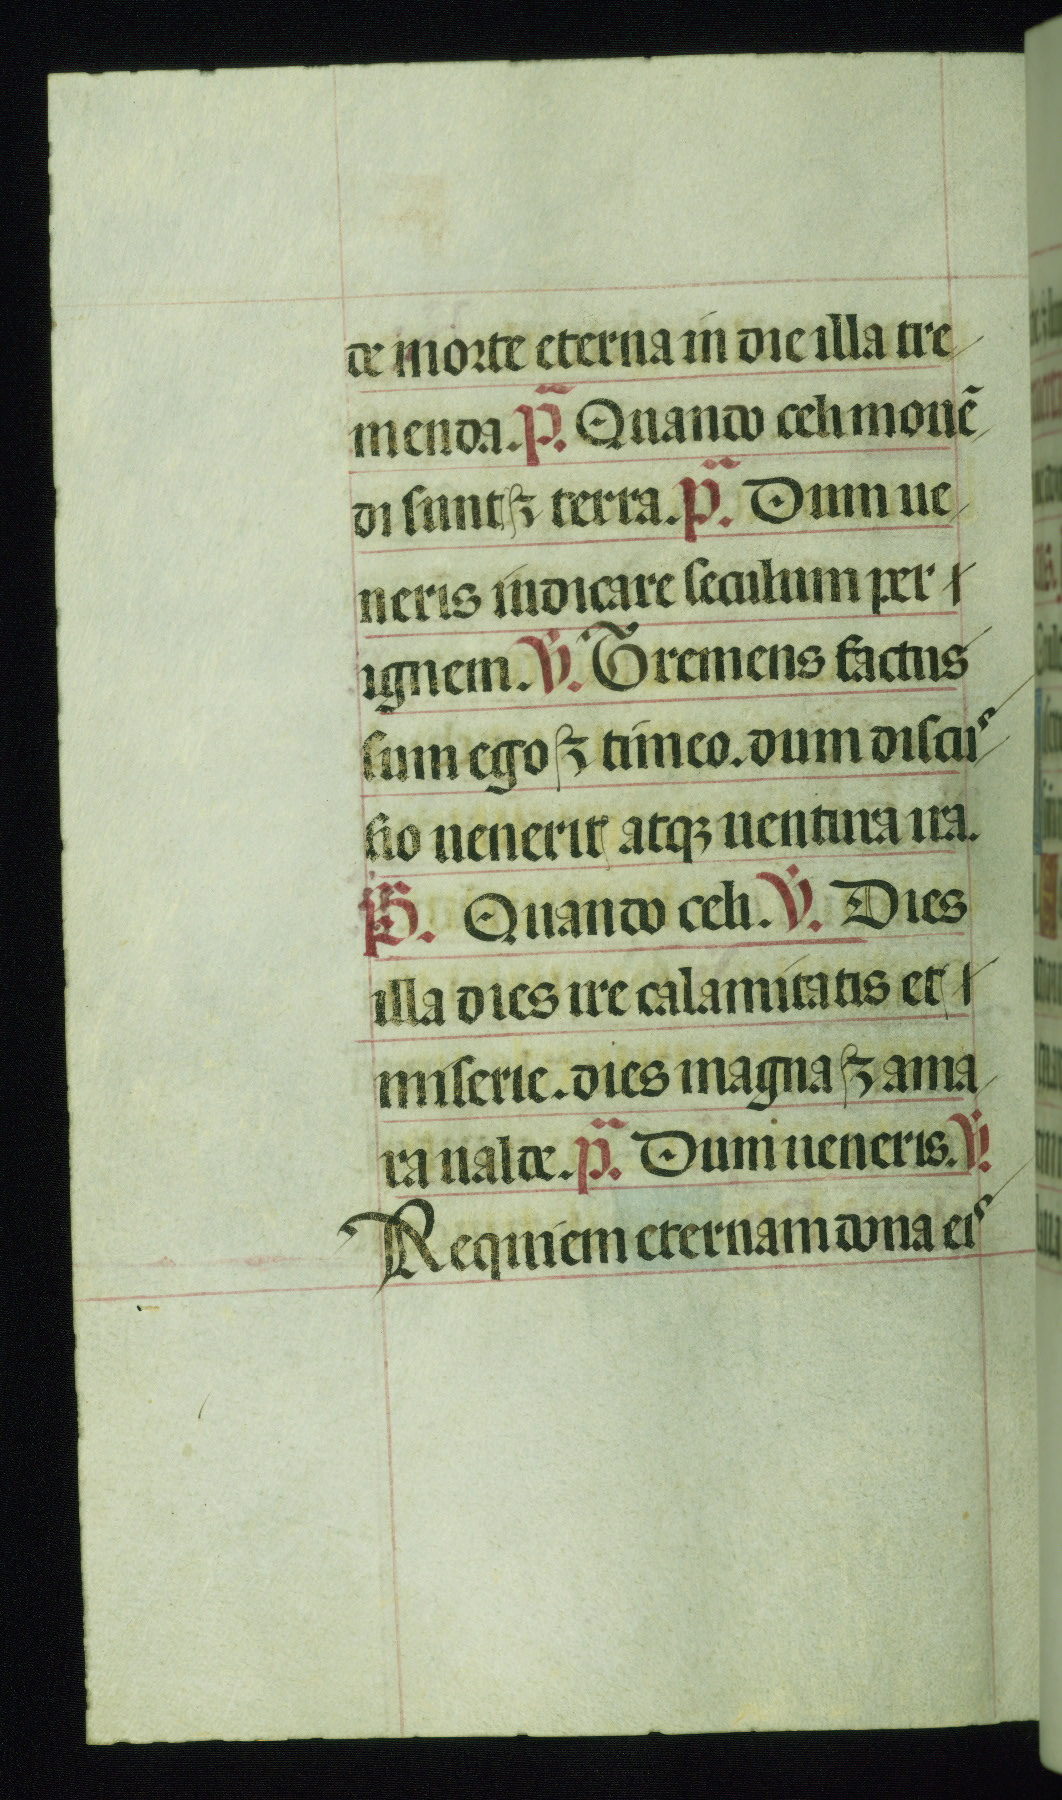 de morte eterna in die illa tre
menda. P̃. Quando celi mouẽ
di sunt ꝫ terra. P̃. Dum ue
neris iudicare seculum per
ignem. V̇. Tremens factus
sum ego ꝫ timeo. dum discus
sio uenerit atqꝫ uentura ira.
P̃. Quando celi. V̇. Dies
illa dies ire calamitatis et
miserie. dies magna ꝫ ama
ra ualde. P̃. Dum ueneris. V̇.
Requiem eternam dona eis